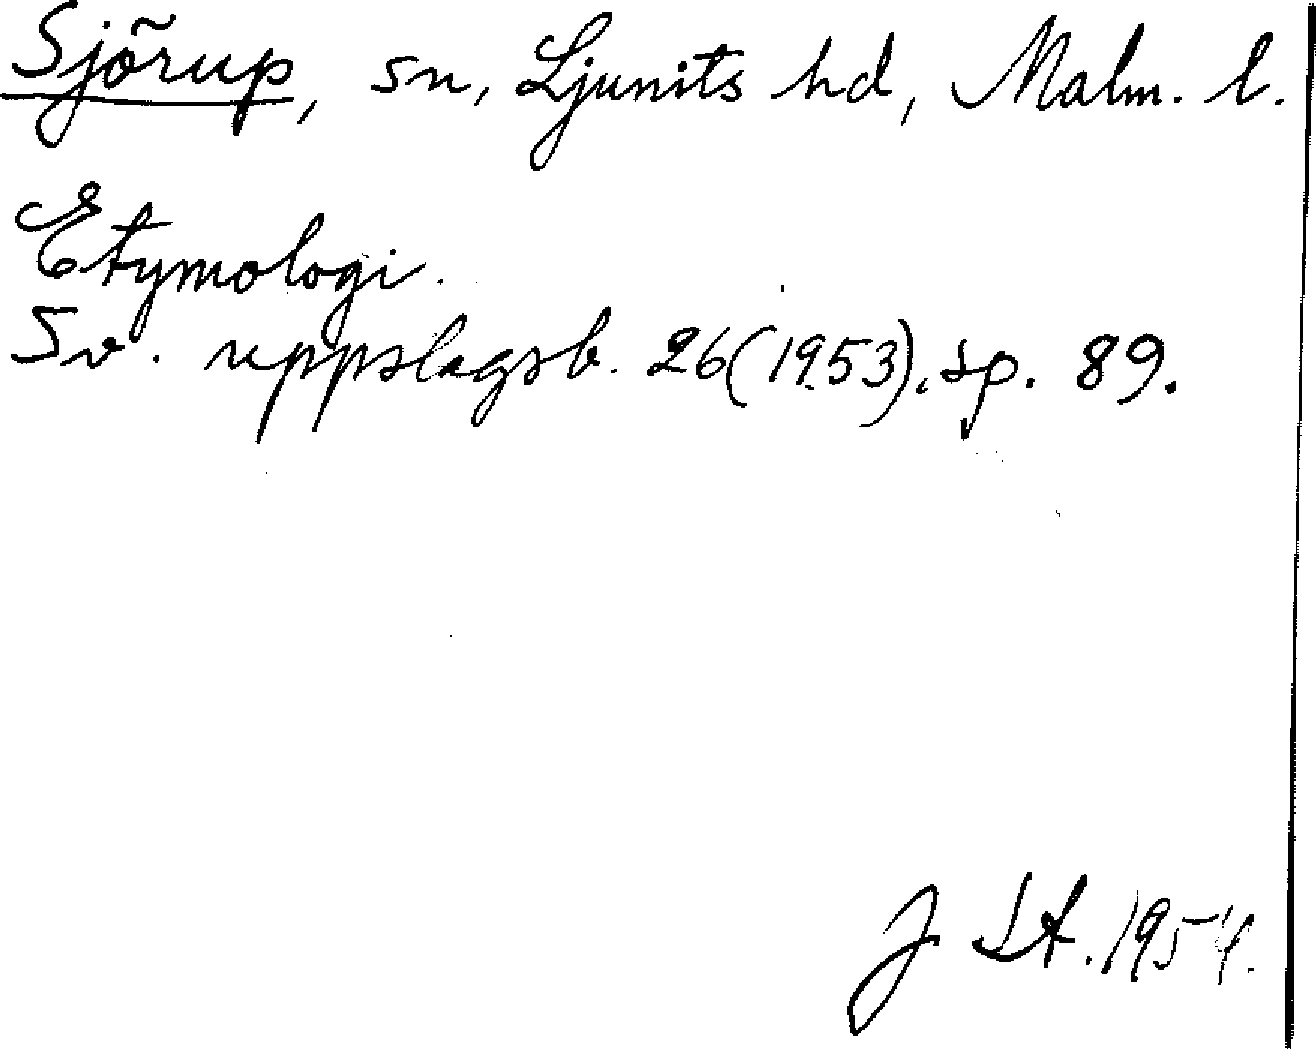 Sjörup, sn, Ljunits hd, Malm. l.
Etymologi.
Sv. uppslagsb. 26(1953). sp. 89.
J St. 1954.